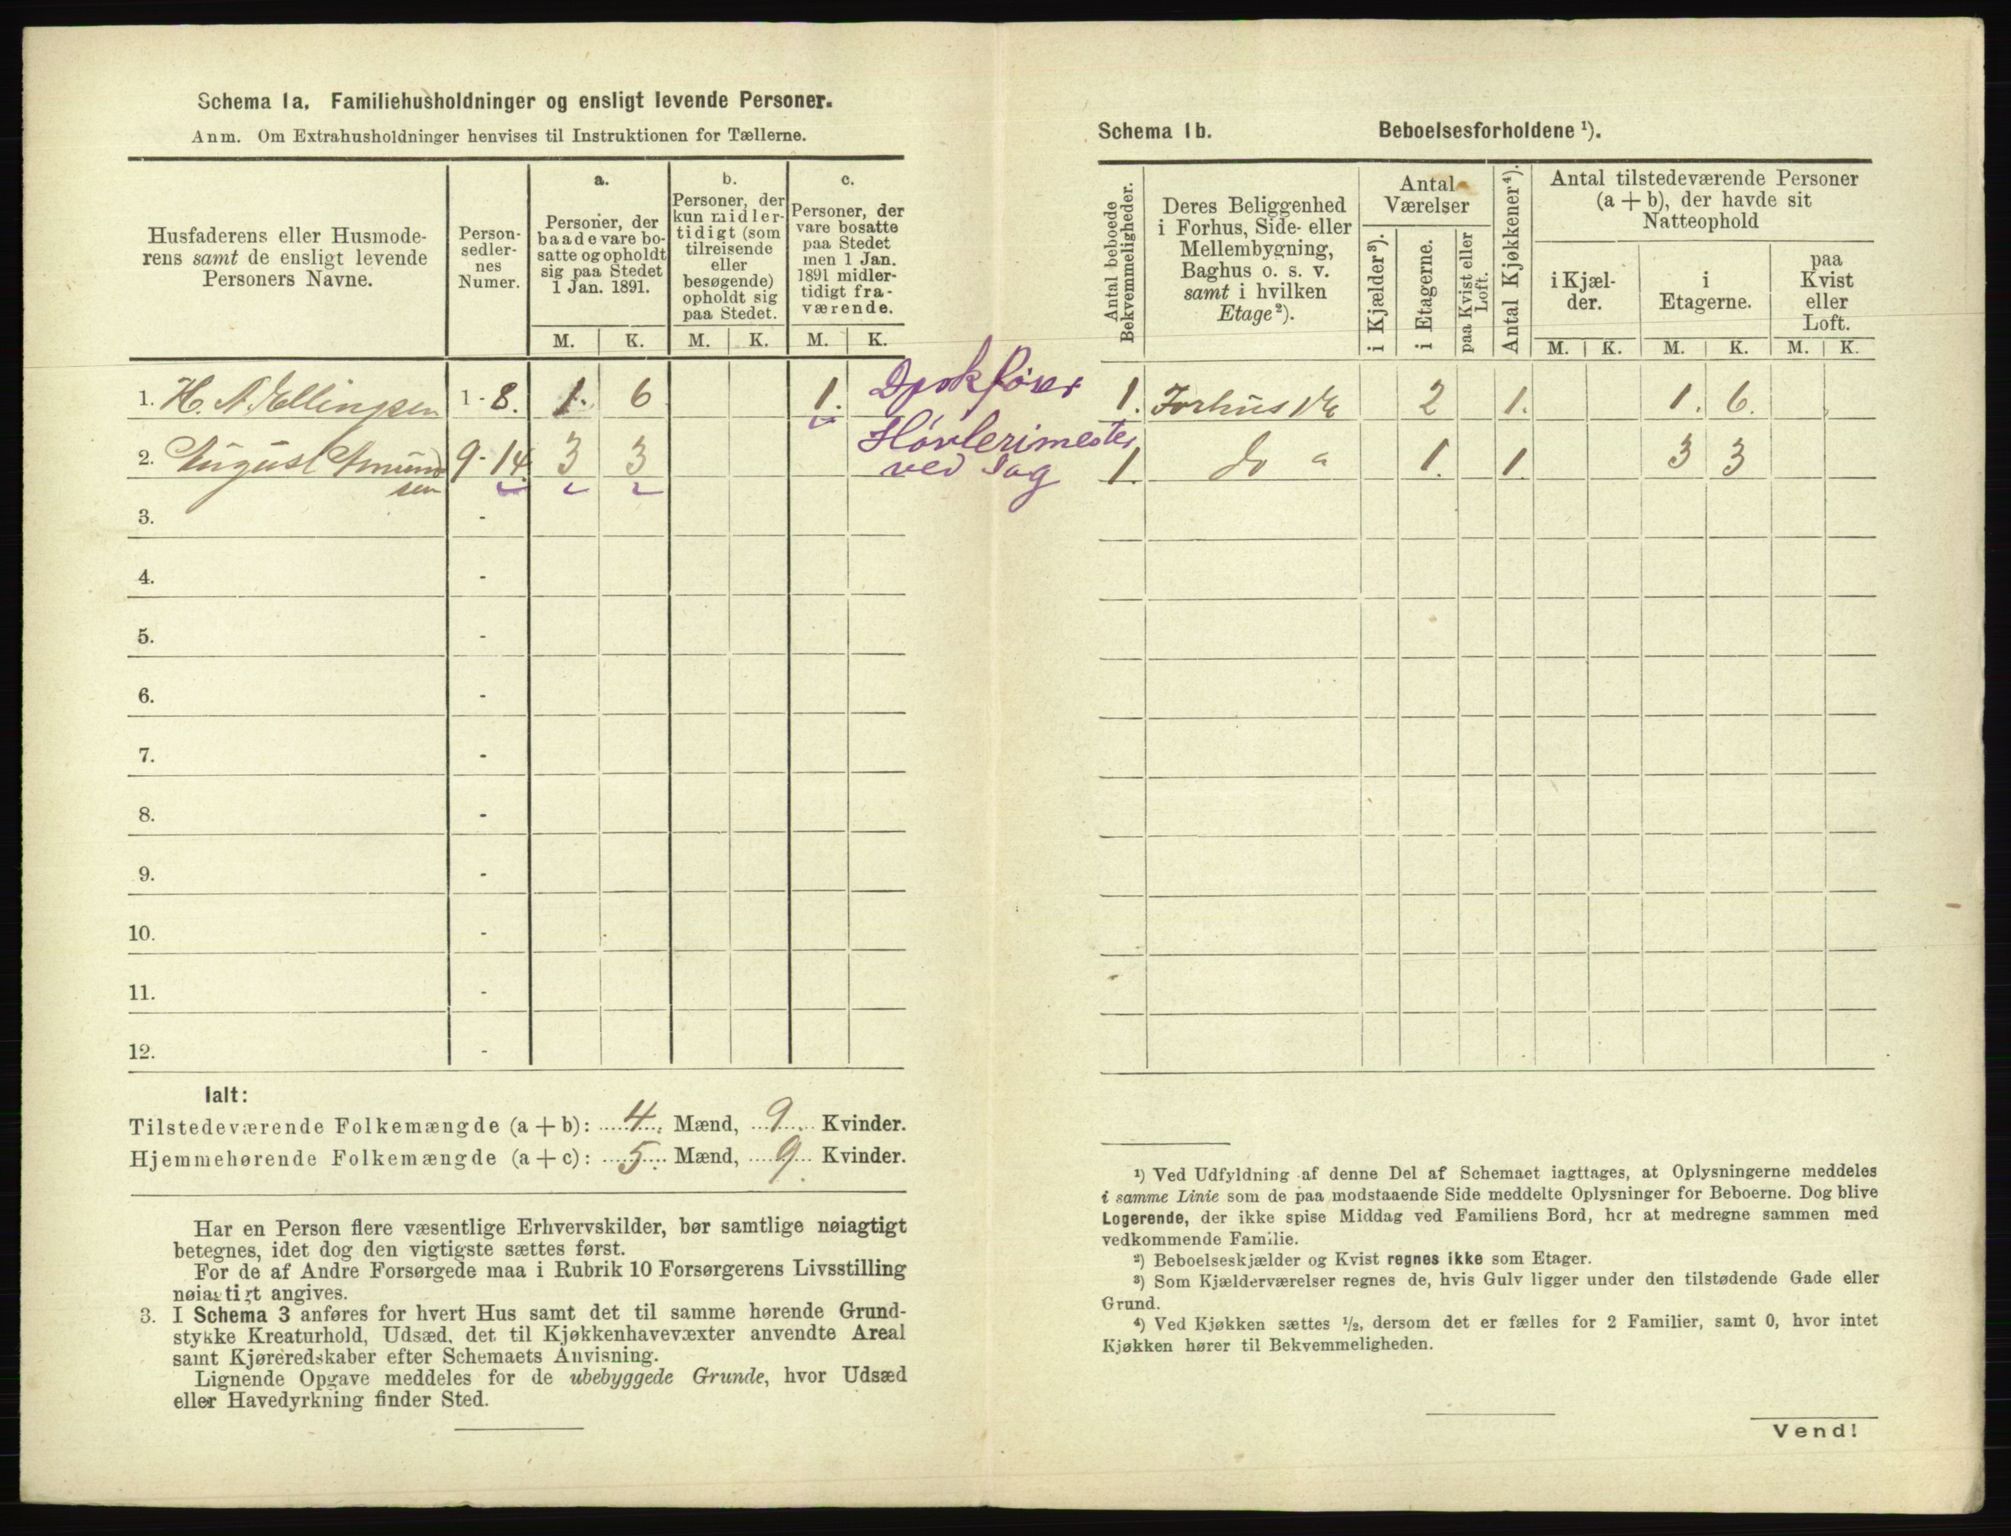 Schema 1a. Familiehusholdninger og ensligt levende Personer.
Anm. Om Extrahusholdninger henvises til Instruktionen for Tællerne.
Husfaderens eller Husmode-
rens samt de ensligt levende
Personers Navne.
Person-
sedler-
nes
Numer.
a.
Personer, der
baade vare bo-
satte og opholdt
sig paa Stedet
1 Jan. 1891.
b.
Personer, der
kun midler-
tidigt (som
tilreisende
eller
besøgende)
opholdt sig
paa Stedet.
c.
Personer, der
vare bosatte
paa Stedet
men 1 Jan.
1891 midler-
tidigt fra-
værende.
M. K. M. K. M. K.
1. H. A. Ellingsen 1-8. 1. 6 1.
2. August Amund 9-14. 3 3
sen
Høvlerimester
ved Sag
3. -
4. -
5. -
6. -
7. -
8. -
9. -
10. -
11. -
12. -
Ialt:
Tilstedeværende Folkemængde (a + b): 4 Mænd, 9 Kvinder.
Hjemmehørende Folkemængde (a + c): 5 Mænd, 9 Kvinder.
Har en Person flere væsentlige Erhvervskilder, bør samtlige nøiagtigt
betegnes, idet dog den vigtigste sættes først.
For de af Andre Forsørgede maa i Rubrik 10 Forsørgerens Livsstilling
nøiagtigt angives.
3. I Schema 3 anføres for hvert Hus samt det til samme hørende Grund-
stykke Kreaturhold, Udsæd, det til Kjøkkenhavevæxter anvendte Areal
samt Kjøreredskaber efter Schemaets Anvisning.
Lignende Opgave meddeles for de ubebyggede Grunde, hvor Udsæd
eller Havedyrkning finder Sted.
Schema 1b. Beboelsesforholdene ¹).
Antal beboede
Bekvemmeligheder.
Deres Beliggenhed
i Forhus, Side- eller
Mellembygning,
Baghus o. s. v.
samt i hvilken
Etage ²).
Antal
Værelser
i Kjælder ³).
i Etagerne.
paa Kvist eller
Loft.
Antal Kjøkkener ⁴).
Antal tilstedeværende Personer
(a + b), der havde sit
Natteophold
i Kjæl-
der.
i
Etagerne.
paa
Kvist
eller
Loft.
M. K. M. K. M. K.
1. Forhus 2 1. 1. 6.
1. do " 1. 1. 3 3
¹) Ved Udfyldning af denne Del af Schemaet iagttages, at Oplysningerne meddeles
i samme Linie som de paa modstaaende Side meddelte Oplysninger for Beboerne. Dog blive
Logerende, der ikke spise Middag ved Familiens Bord, her at medregne sammen med
vedkommende Familie.
²) Beboelseskjælder og Kvist regnes ikke som Etager.
³) Som Kjælderværelser regnes de, hvis Gulv ligger under den tilstødende Gade eller
Grund.
⁴) Ved Kjøkken sættes ½, dersom det er fælles for 2 Familier, samt 0, hvor intet
Kjøkken hører til Bekvemmeligheden.
Vend!